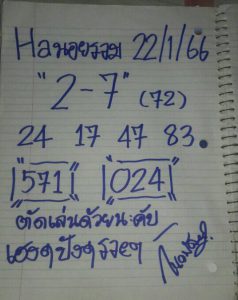 Haนอยรวม 22/1/66
"2-7" (72)
24 17 47 83.
571 024
ตัดเล่นด้วยนะคับ
เฮงๆปังๆรวยๆ